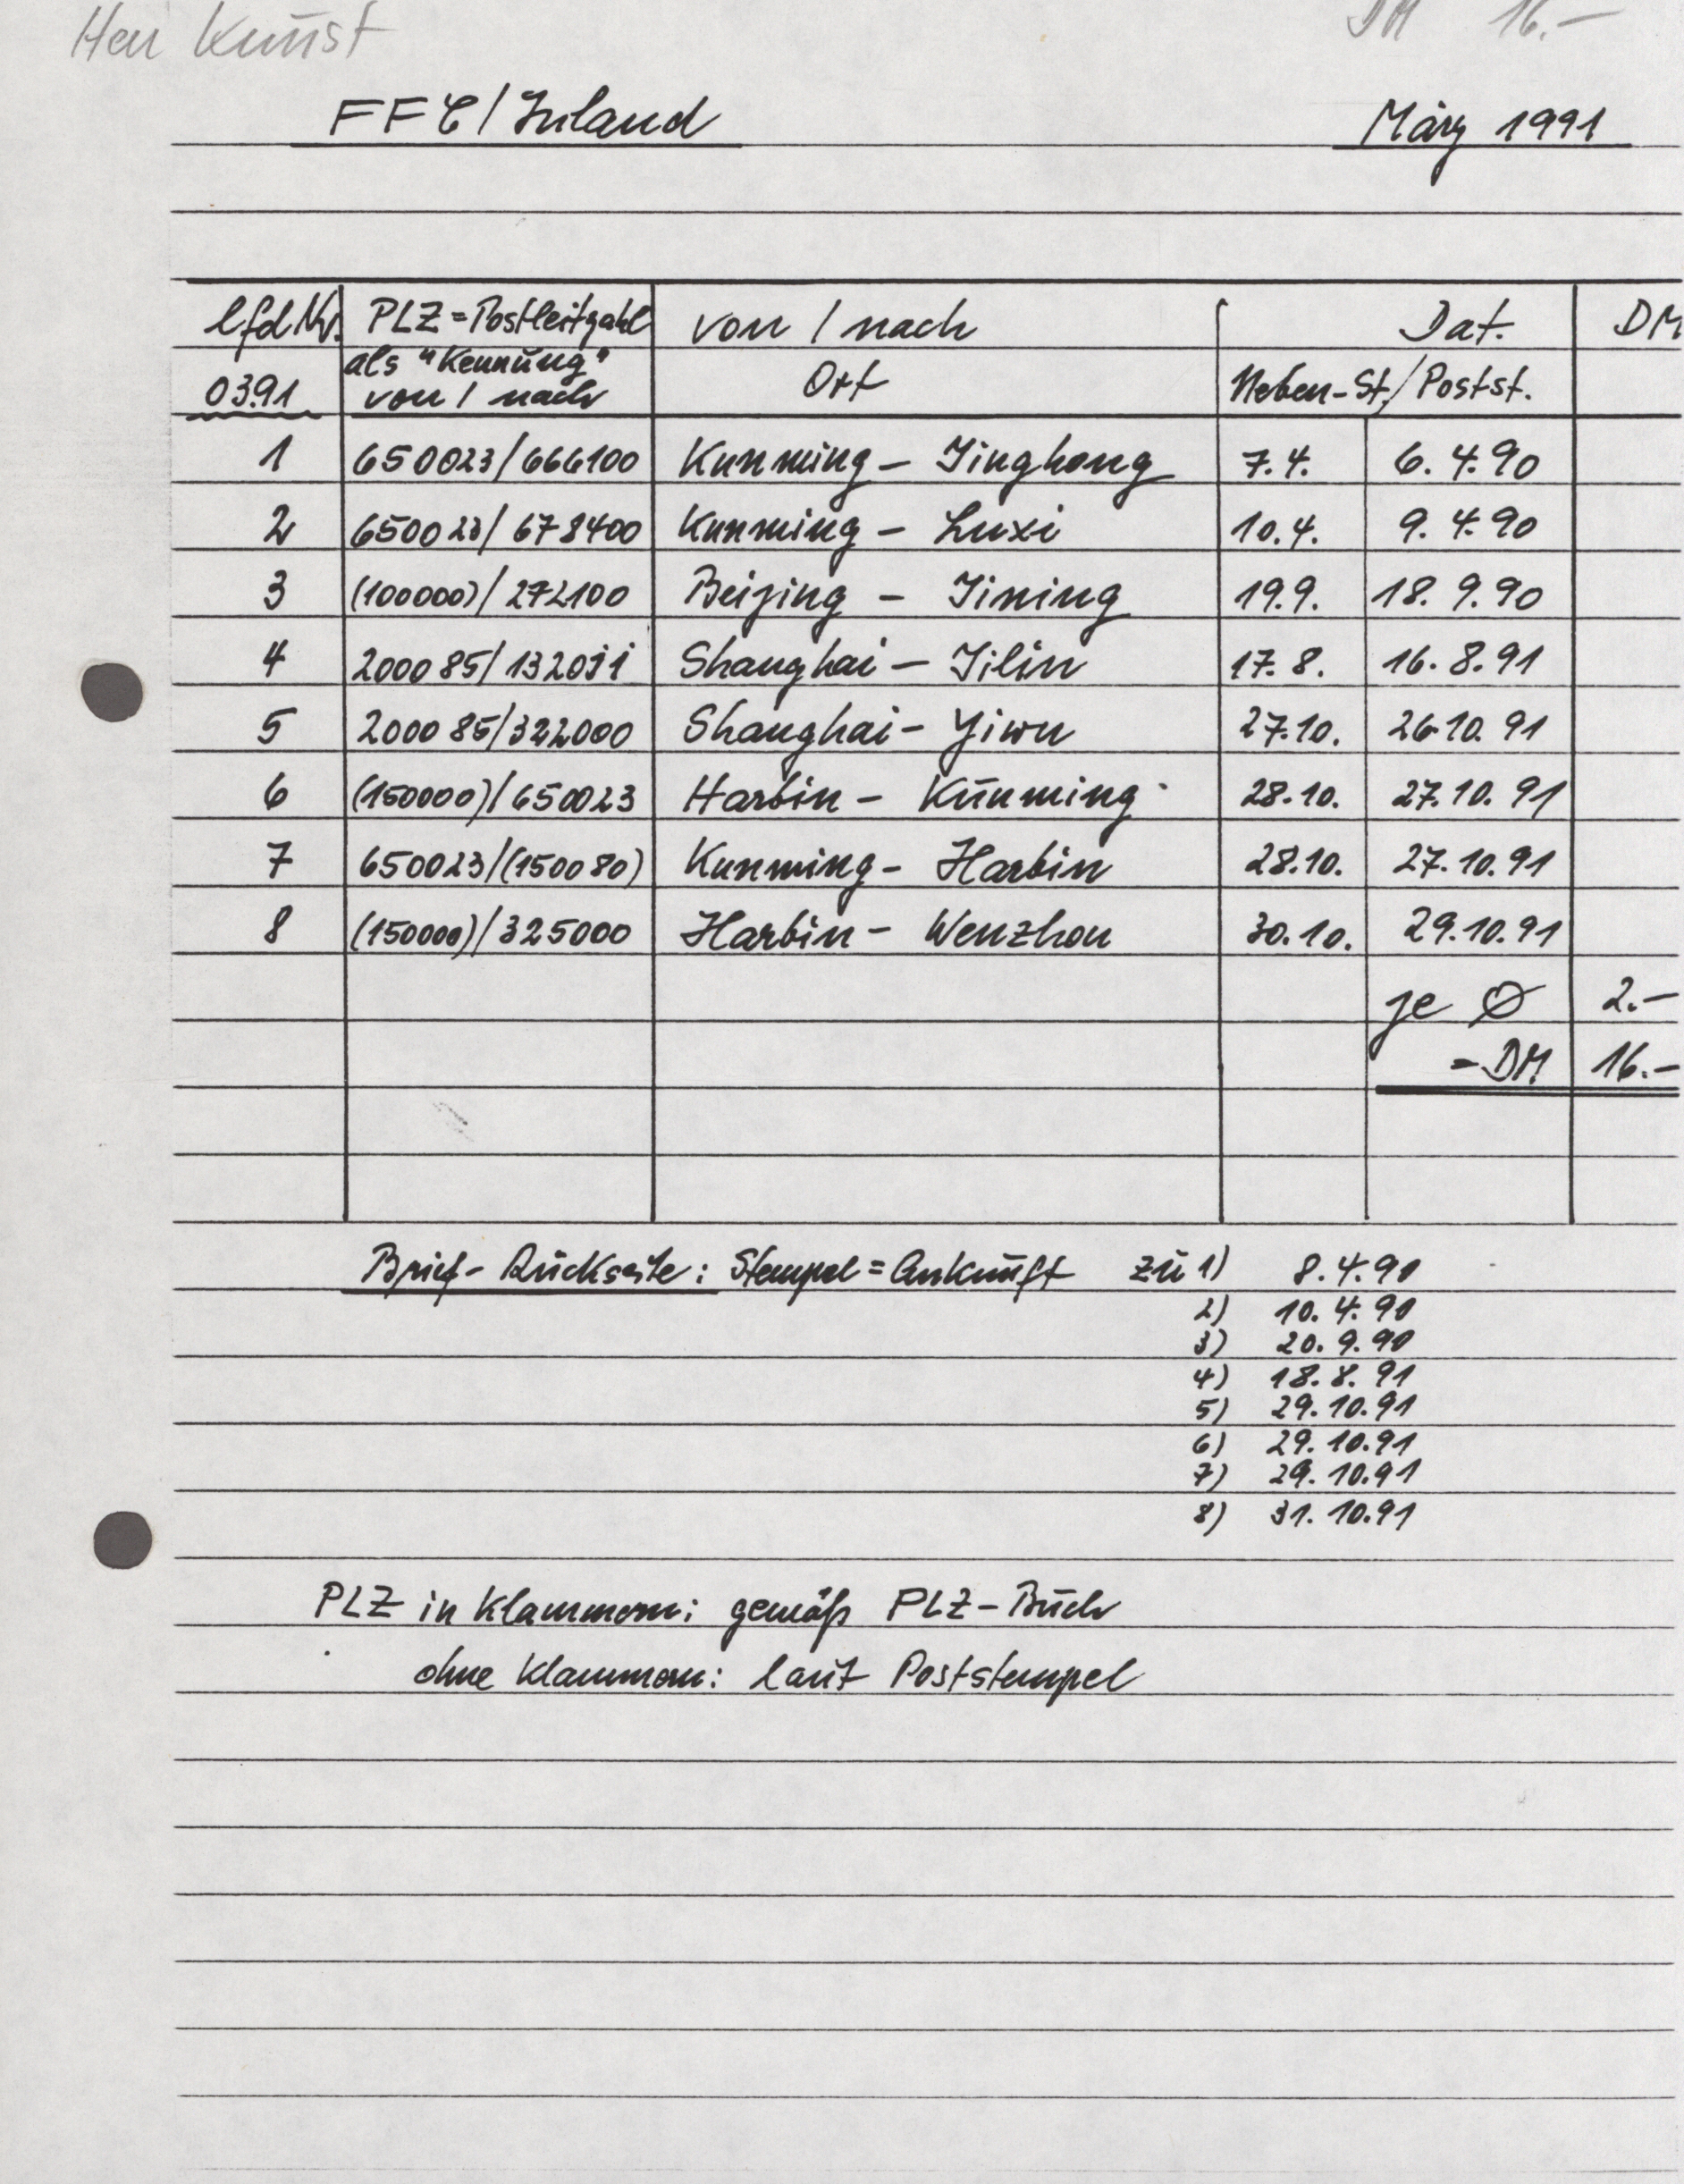 Herr Kunst DM 16.-
FFC/Inland März 1991
lfd Nr. PLZ=Postleitzahl von / nach Dat. DM
als "Kennung" Ort Neben-St./Postst.
03.91 von / nach
1 650023/666100 Kunming - Jinghong 7.4. 6.4.90
2 650023/678400 Kunming - Luxi 10.4. 9.4.90
3 (100000)/272100 Beijing - Jining 19.9. 18.9.90
4 200085/132011 Shanghai - Jilin 17.8. 16.8.91
5 200085/322000 Shanghai - Yiwu 27.10. 26.10.91
6 (150000)/650023 Harbin - Kunming 28.10. 27.10.91
7 650023/(150080) Kunming - Harbin 28.10. 27.10.91
8 (150000)/325000 Harbin - Wenzhou 30.10. 29.10.91
je Ø 2.-
= DM 16.-
Brief-Rückseite: Stempel = Ankunft zu 1) 8.4.90
2) 10.4.90
3) 20.9.90
4) 18.8.91
5) 29.10.91
6) 29.10.91
7) 29.10.91
8) 31.10.91
PLZ in Klammern: gemäß PLZ-Buch
ohne Klammern: laut Poststempel